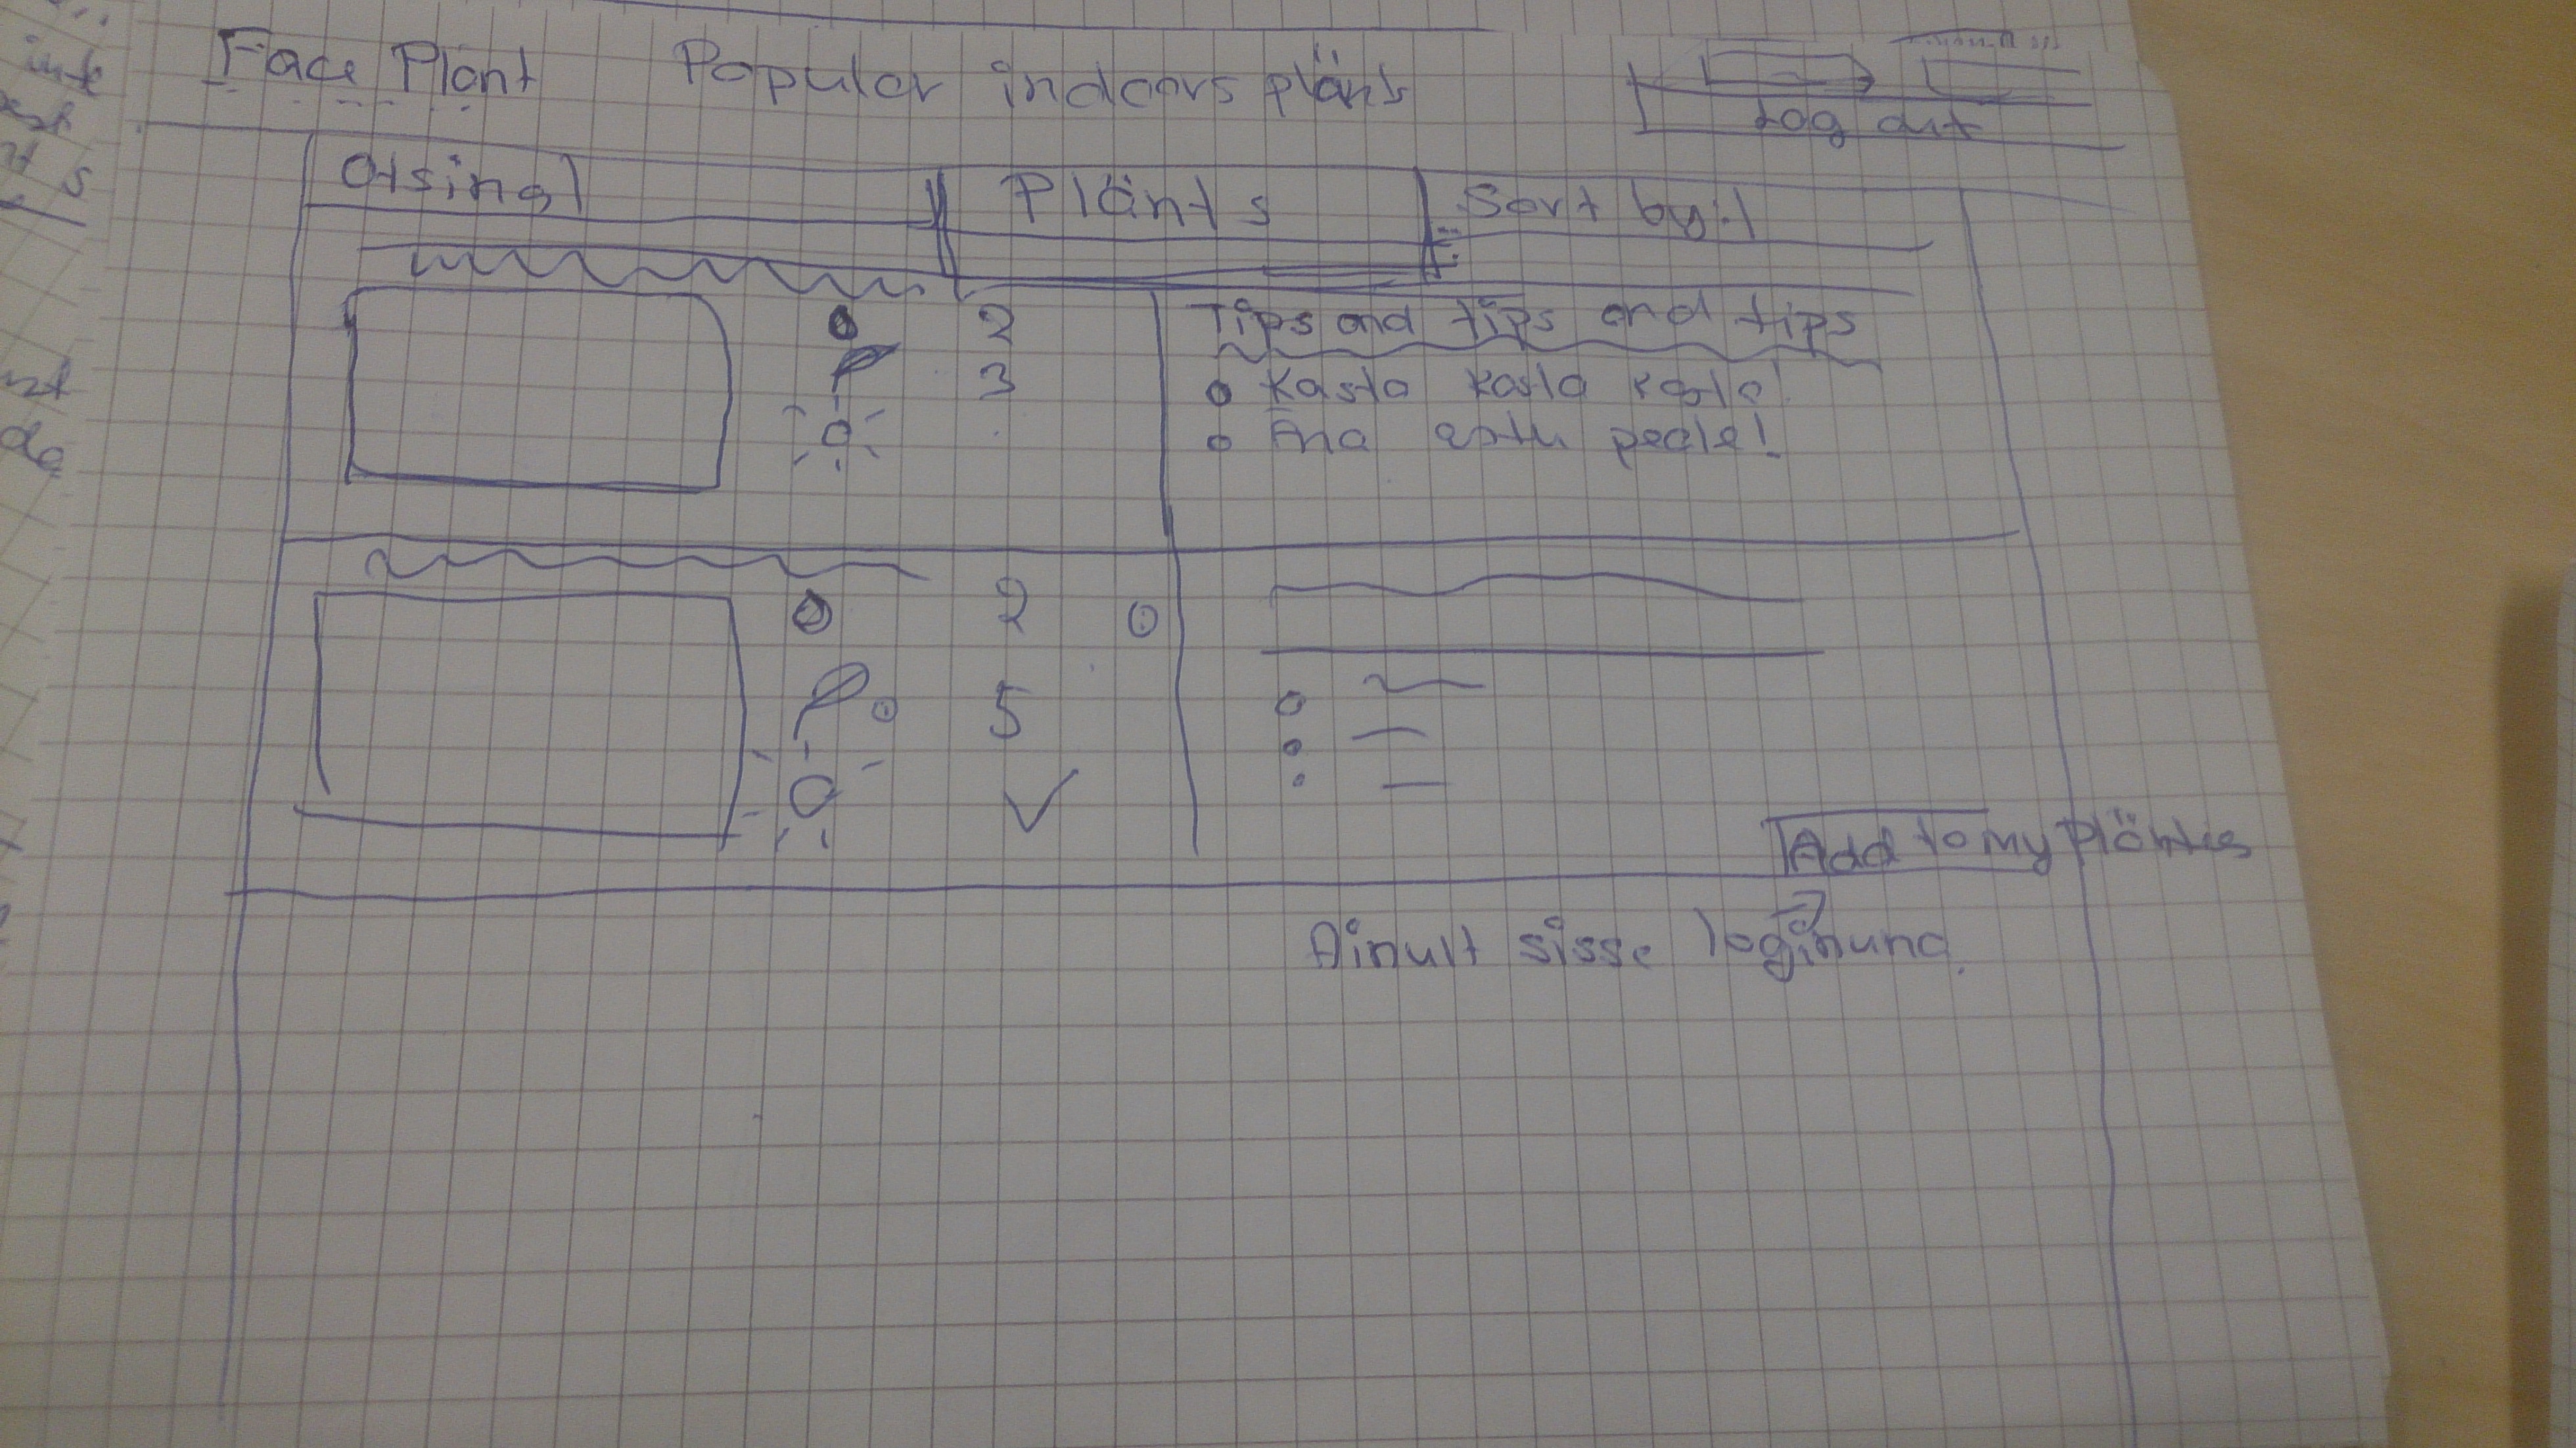 Face Plänt Populär indoors plänts
Log out
Otsing
Plänts
Sort by:
2
3
Tips and tips and tips
Kasta kasta kasta!
Ära astu peale!
2
5
Add to my Pläntes
Ainult sisse loginuna.